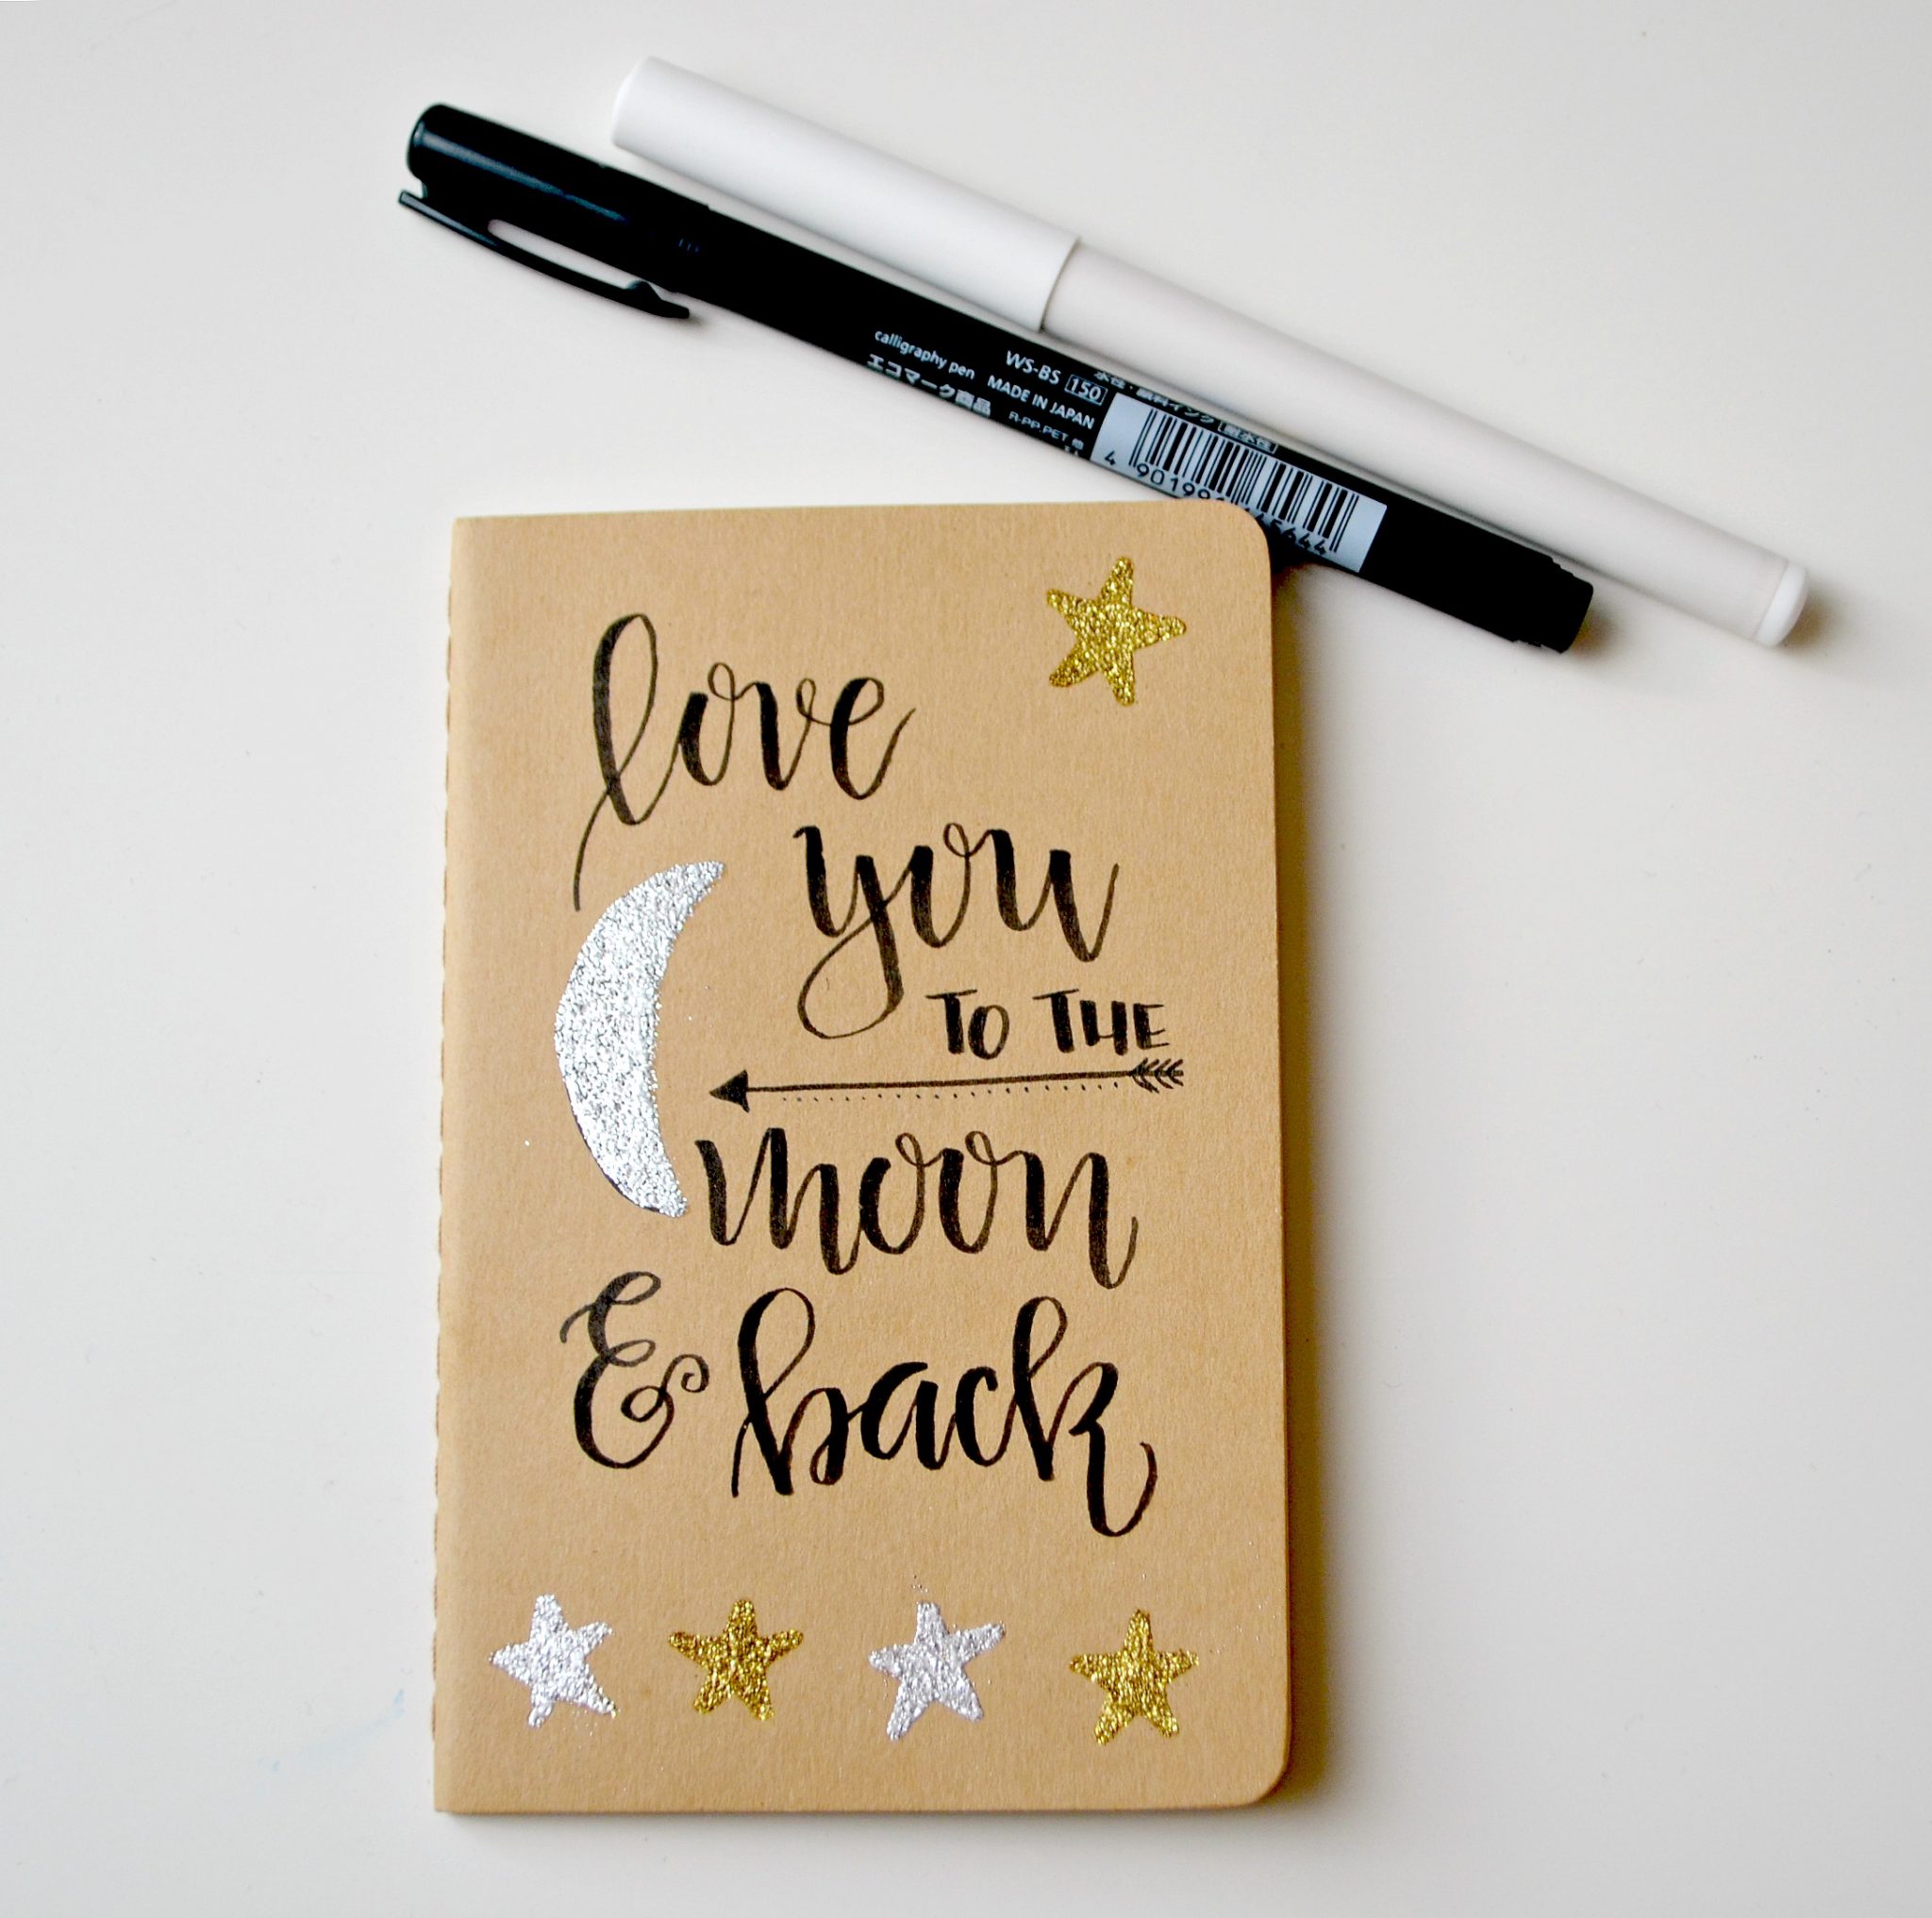 calligraphy pen WS-BS 150
エコマーク商品 MADE IN JAPAN
R-PP.PET
love
you
TO THE
moon
& back